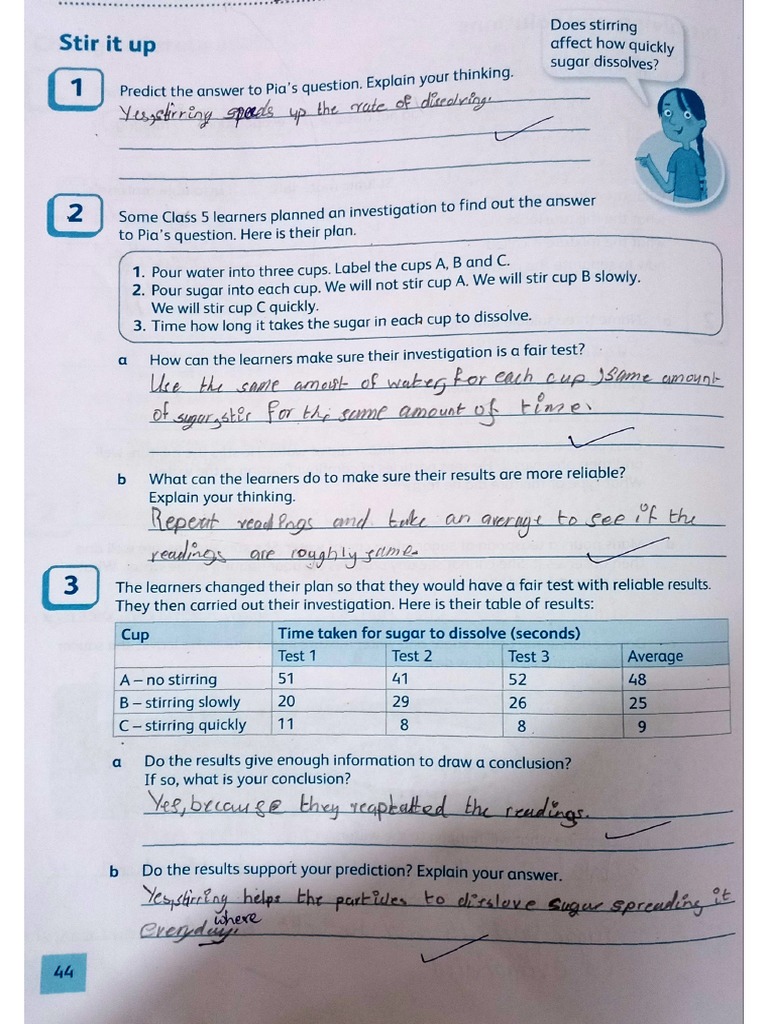 Stir it up
Does stirring
affect how quickly
sugar dissolves?
1
Predict the answer to Pia's question. Explain your thinking.
Yes, stirring speeds up the rate of disolving.
2
Some Class 5 learners planned an investigation to find out the answer
to Pia's question. Here is their plan.
1. Pour water into three cups. Label the cups A, B and C.
2. Pour sugar into each cup. We will not stir cup A. We will stir cup B slowly.
We will stir cup C quickly.
3. Time how long it takes the sugar in each cup to dissolve.
a How can the learners make sure their investigation is a fair test?
Use the same amout of water, for each cup, same amount
of sugar, stir for the same amount of time.
b What can the learners do to make sure their results are more reliable?
Explain your thinking.
Repeat readings and take an average to see if the
readings are roughly same.
3
The learners changed their plan so that they would have a fair test with reliable results.
They then carried out their investigation. Here is their table of results:
Cup Time taken for sugar to dissolve (seconds)
Test 1 Test 2 Test 3 Average
A – no stirring 51 41 52 48
B – stirring slowly 20 29 26 25
C – stirring quickly 11 8 8 9
a Do the results give enough information to draw a conclusion?
If so, what is your conclusion?
Yes, because they the readings.
b Do the results support your prediction? Explain your answer.
Yes, stirring helps the particles to disslove sugar spreading it
where
everyday.
44